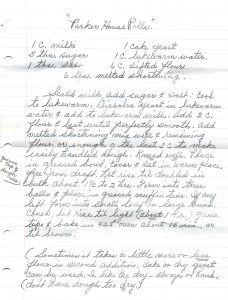 "Parker House Rolls"
1 C. milk 1 Cake yeast
5 tbs. sugar 1 C. lukewarm water.
1 tbs. salt 6 C. sifted flour
6 tbs. melted shortening.
Scald milk, add sugar & salt: Cool
to lukewarm. Dissolve yeast in lukewarm
water & add to lukewarm milk. Add 3 C.
flour & beat until perfectly smooth. Add
melted shortening, mix well & remaining
flour or enough of the last 3 C. to make
easily handled dough. Knead well. Place
in greased bowl. Cover & set in warm place,
free from draft. Let rise til doubled in
bulk about 1½ to 2 hrs. Form into
balls & place in greased muffin tins. If any
left form into small
let rise til light (about 1 hr.)
tops & bake in 425° oven about 15 min., or
til brown.
(Sometimes it takes a little more or less
flour in second addition. Cake or dry yeast
can be used. I like the dry - always on hand.
(dont have dough too dry.)